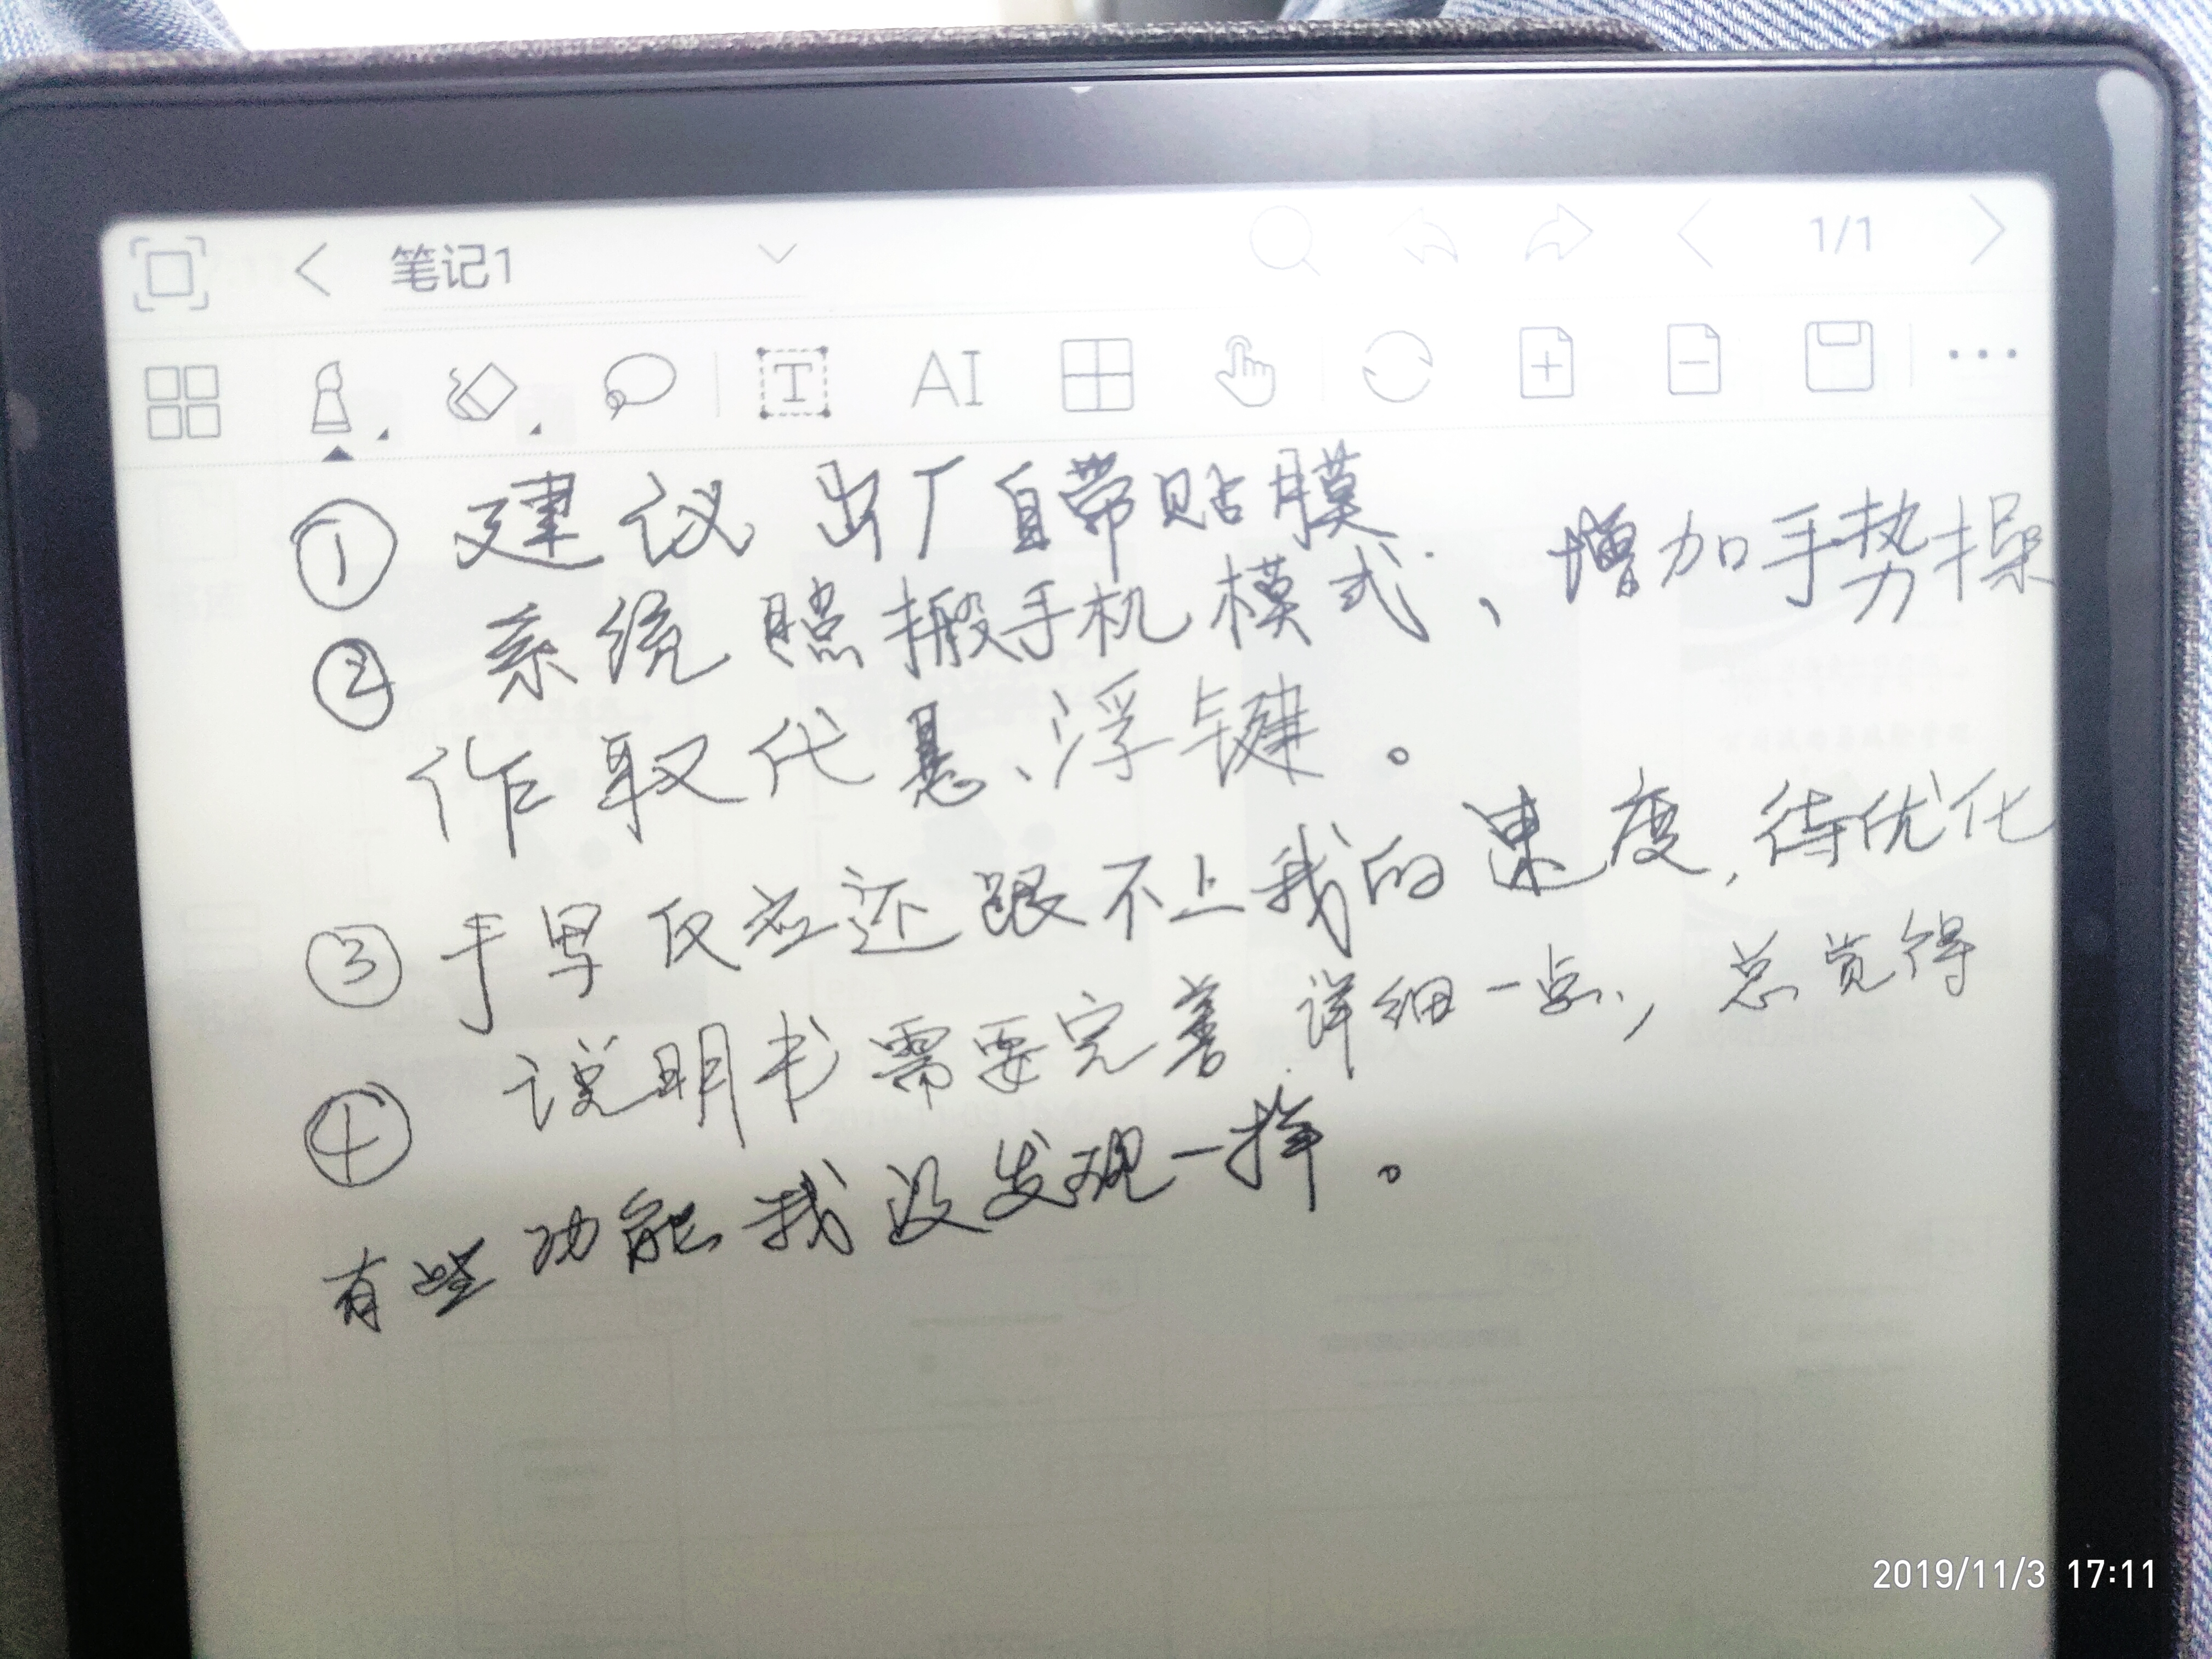 笔记1
1/1
T AI
① 建议出厂自带贴膜
② 系统照搬手机模式、增加手势操
作取代悬浮键。
③ 手写反应还跟不上我的速度,待优化
④ 说明书需要完善详细一点,总觉得
有些功能我没发现一样。
2019/11/3 17:11